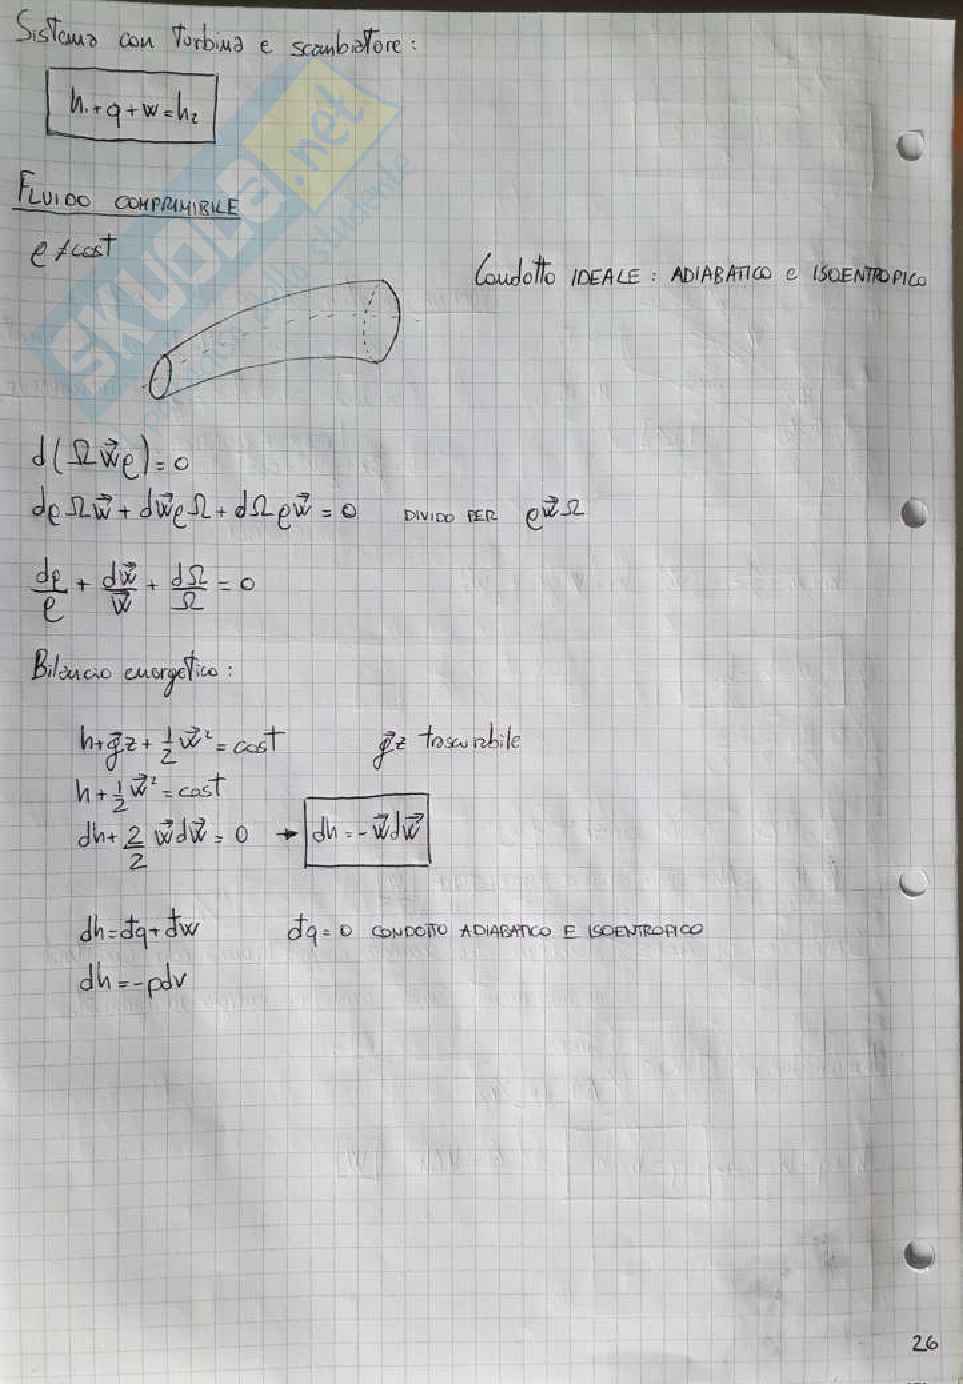 Sistema con turbina e scambiatore:
h₁+q+w=h₂
FLUIDO COMPRIMIBILE
ρ≠cost
Condotto IDEALE: ADIABATICO e ISOENTROPICO
d(Ωw⃗ρ)=0
dρΩw⃗+dw⃗ρΩ+dΩρw⃗=0 DIVIDO PER ρw⃗Ω
dρ/ρ + dw⃗/w⃗ + dΩ/Ω = 0
Bilancio energetico:
h+g⃗z+1/2w⃗²=cost g⃗z trascurabile
h+1/2w⃗²=cost
dh+2/2 w⃗dw⃗=0 → dh=-w⃗dw⃗
dh=đq+đw đq=0 CONDOTTO ADIABATICO E ISOENTROPICO
dh=-pdv
26
SKUOLA.net